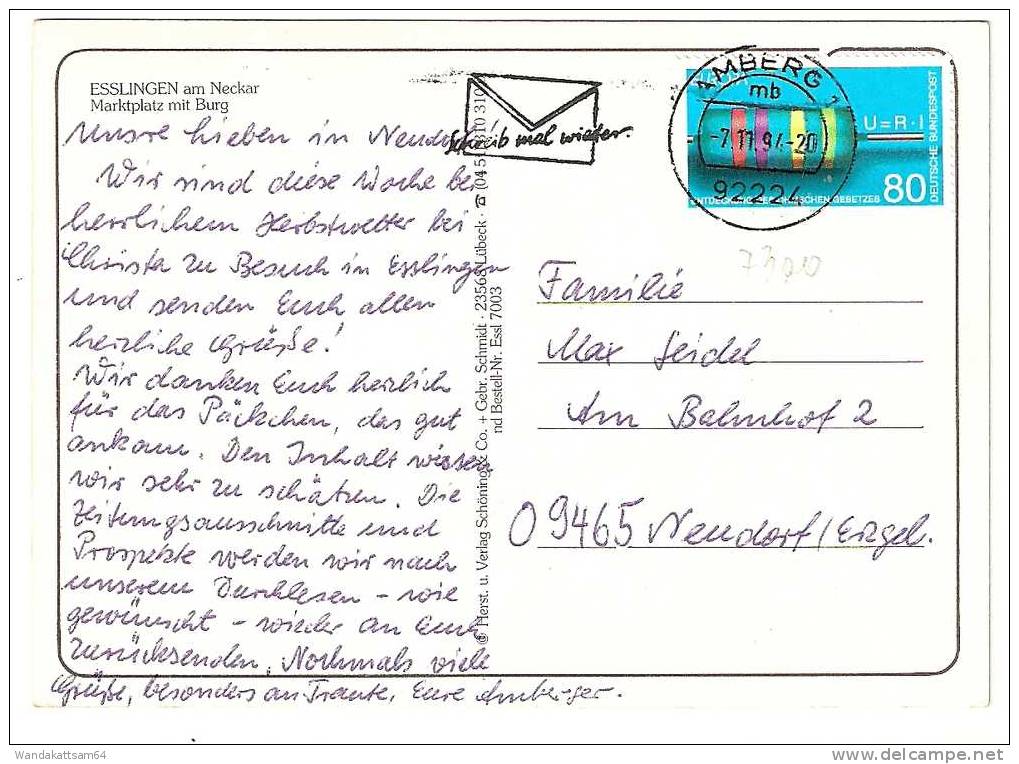 ESSLINGEN am Neckar
Marktplatz mit Burg
Unsre Lieben in Neudorf!
Wir sind diese Woche bei
herrlichem Herbstwetter bei
Christa zu Besuch in Esslingen
und senden Euch allen
herzliche Grüße!
Wir danken Euch herzlich
für das Päckchen, das gut
ankam. Den Inhalt wissen
wir sehr zu schätzen. Die
Zeitungsausschnitte und
Prospekte werden wir nach
unserem Durchlesen – wie
gewünscht – wieder an Euch
zurücksenden. Nochmals viele
Grüße, besonders an Traute. Eure Amberger.
© Herst. u. Verlag Schöning & Co. + Gebr. Schmidt · 23568 Lübeck · ☎ (04 51) 310 310
nd Bestell-Nr. Essl 7003
Schreib mal wieder.
AMBERG 1
mb
-7.11.94-20
92224
U=R·I
80
DEUTSCHE BUNDESPOST
ENTDECKUNG DES OHMSCHEN GESETZES
Familie
Max Seidel
Am Bahnhof 2
09465 Neudorf/Erzgeb.
Wandakattsam64
www.delcampe.net